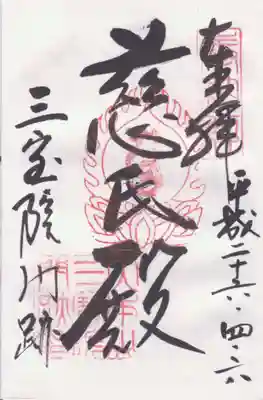 奉拝
平成二六・四・六
慈氏殿
三宝院門跡